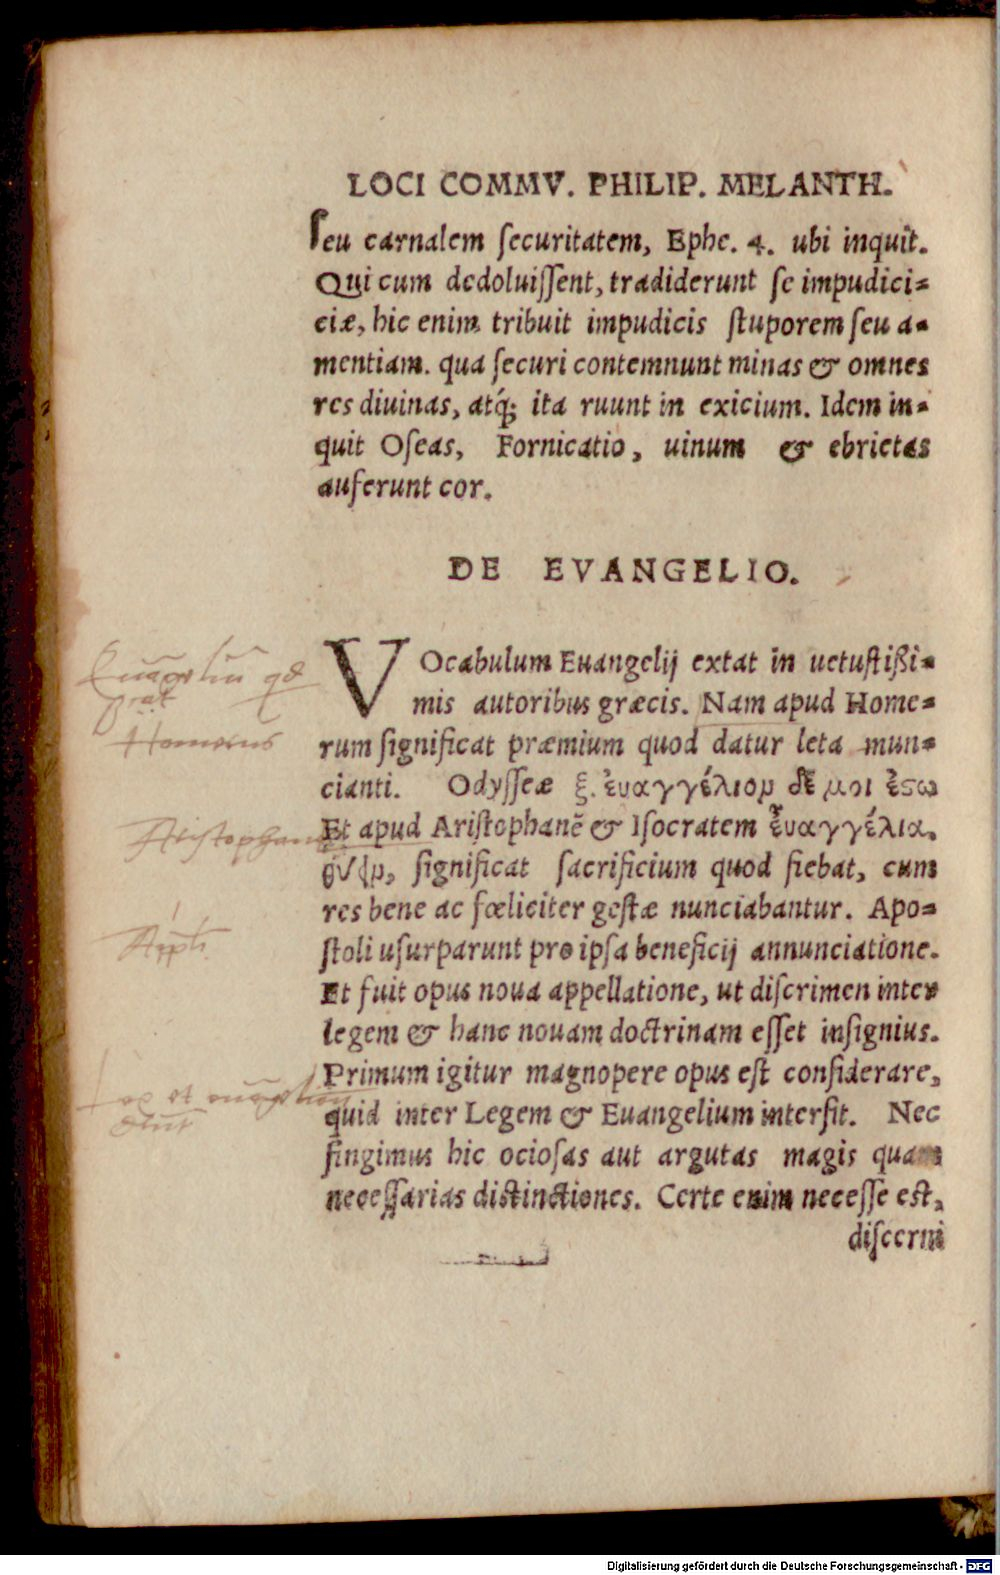 LOCI COMMV. PHILIP. MELANTH.
ſeu carnalem ſecuritatem, Ephe. 4. ubi inquit.
Qui cum dedoluiſſent, tradiderunt ſe impudici=
ciæ, hic enim tribuit impudicis ſtuporem ſeu a=
mentiam. qua ſecuri contemnunt minas & omnes
res diuinas, atq́; ita ruunt in exicium. Idem in=
quit Oſeas, Fornicatio, uinum & ebrietas
auferunt cor.
DE EVANGELIO.
VOcabulum Euangelij extat in uetuſtißi=
mis autoribus græcis. Nam apud Home=
rum ſignificat præmium quod datur leta nun=
cianti. Odyſſeæ ξ. ἐυαγγέλιον δέ μοι ἔςω
Et apud Ariſtophanẽ & Iſocratem ἐυαγγέλια.
ſignificat ſacrificium quod fiebat, cum
res bene ac fœliciter geſtæ nunciabantur. Apo=
ſtoli uſurparunt pro ipſa beneficij annunciatione.
Et fuit opus noua appellatione, ut diſcrimen inter
legem & hanc nouam doctrinam eſſet inſignius.
Primum igitur magnopere opus eſt conſiderare,
quid inter Legem & Euangelium interſit. Nec
fingimus hic ocioſas aut argutas magis quam
neceſſarias diſtinctiones. Certe enim neceſſe eſt,
diſcerni
Homerus
Digitalisierung gefördert durch die Deutsche Forschungsgemeinschaft - DFG